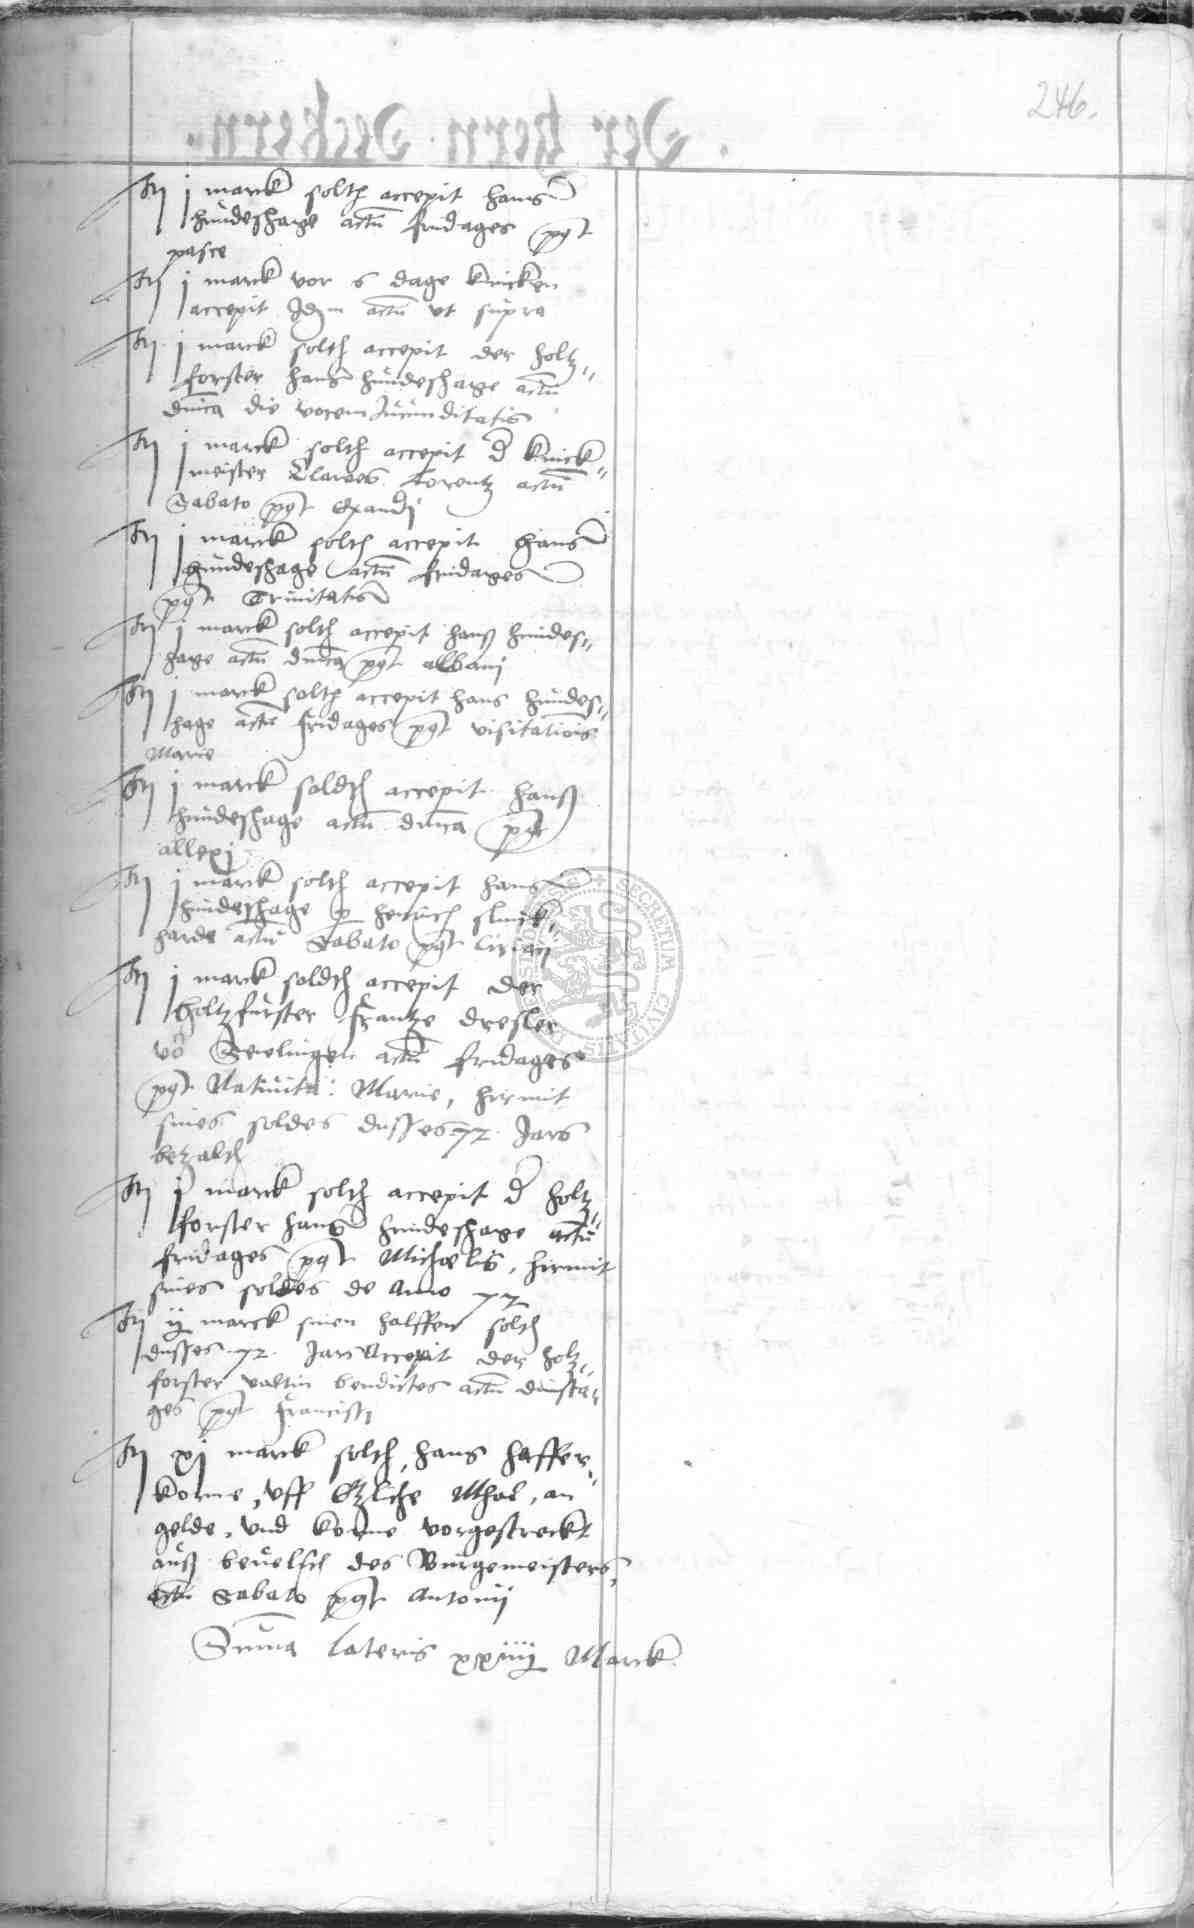 246.
It j marck solth accepit hans
hundeshage actu fridages pt
pasce
It j marck vor 6 dage knicken
accepit Idem actu ut supra
It j marck solth accepit der holtz=
forster hans hundeshage actu
dnica die vocem Jucunditatis
It j marck solth accepit d knick=
meister Clawes Lorentz actu
Sabato pt Exaudi
It j marck solth accepit hans
hundeshage actu fridages
pt Trinitatis
It j marck solth accepit hanß hundes=
hage actu dnica pt albani
It j marck solth accepit hans hundes=
hage actu fridages pt visitationis
Marie
It j marck soldth accepit hanß
hundeshage actu dnica pt
allexj
It j marck solth accepit hans
hundeshage p henrich
harde actu Sabato pt Ciriaci
It j marck soldth accepit der
holtzfurster frantze dresler
vo Sewelingen actu fridages
pt Nativita: Marie, hirmit
sines soldes dusses 72 Jars
betzalth
It j marck solth accepit d holtz=
forster hans hundeshage actu
fridages pt Michaelis, hirmit
sines soldes de Anno 72
It ij marck sinen halffen solth
dusses 72 Jars Accepit der holtz=
forster valtin bendictes actu dinsta=
ges pt Francisci
It xj marck solth, hans haffer=
korne, uff Etzliche Mhal, an
gelde, und korne vorgestreckt
auß bevelich des Burgemeisters,
actu Sabato pt Antonij
Suma lateris xxiiij Marck
SECRETUM CIVITATIS